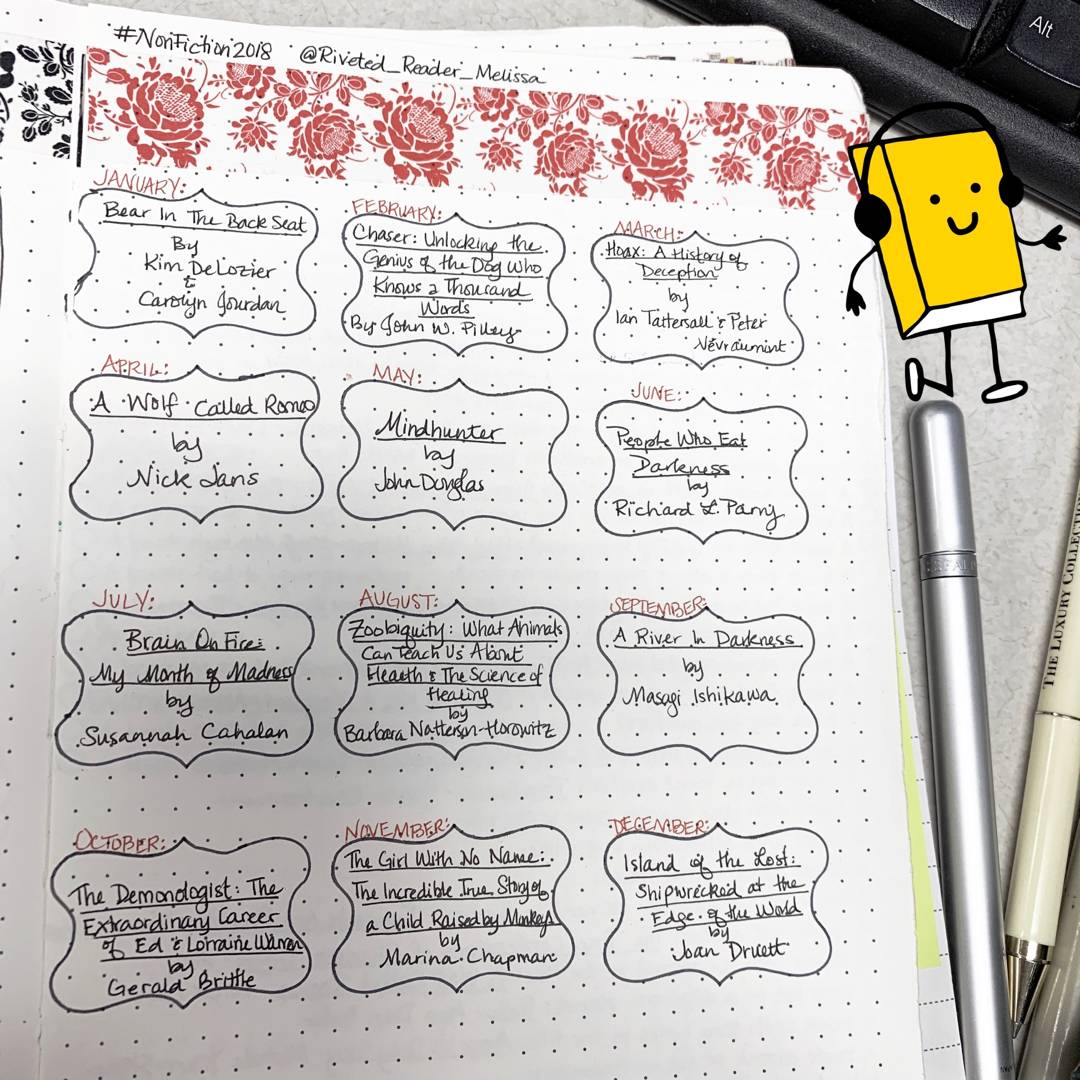 #NonFiction2018 @Riveted_Reader_Melissa
JANUARY:
Bear In The Back Seat
By
Kim DeLozier
&
Carolyn Jourdan
FEBRUARY:
Chaser: Unlocking the
Genius of the Dog Who
Knows a Thousand
Words
By John W. Pilley
MARCH:
Hoax: A History of
Deception
by
Ian Tattersall & Peter
Névraumint
APRIL:
A Wolf Called Romeo
by
Nick Jans
MAY:
Mindhunter
by
John Douglas
JUNE:
People Who Eat
Darkness
by
Richard L. Parry
JULY:
Brain On Fire:
My Month of Madness
by
Susannah Cahalan
AUGUST:
Zoobiquity: What Animals
Can Teach Us About
Health & The Science of
Healing
by
Barbara Natterson-Horowitz
SEPTEMBER:
A River In Darkness
by
Masaji Ishikawa
OCTOBER:
The Demonologist: The
Extraordinary Career
of Ed & Lorraine Warren
by
Gerald Brittle
NOVEMBER:
The Girl With No Name:
The Incredible True Story of
a Child Raised by Monkeys
by
Marina Chapman
DECEMBER:
Island of the Lost:
Shipwrecked at the
Edge of the World
by
Joan Druett
Alt
THE LUXURY